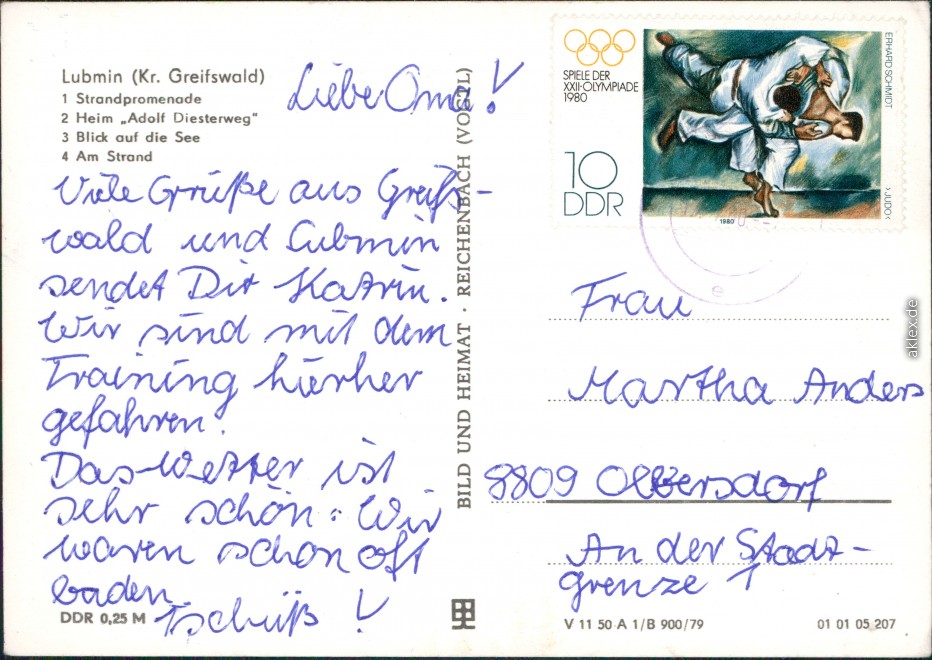 Lubmin (Kr. Greifswald)
1 Strandpromenade
2 Heim „Adolf Diesterweg"
3 Blick auf die See
4 Am Strand
Liebe Oma!
Viele Grüße aus Greifs-
wald und Lubmin
sendet Dir Katrin.
Wir sind mit dem
Training hierher
gefahren.
Das Wetter ist
sehr schön. Wir
waren schon oft
baden.
Tschüß!
DDR 0,25 M
BILD UND HEIMAT · REICHENBACH (VOGTL)
SPIELE DER
XXII·OLYMPIADE
1980
10
DDR
ERHARD SCHMIDT
›JUDO‹
1980
Frau
Martha Anders
8809 Olbersdorf
An der Stadt-
grenze 1
V 11 50 A 1/B 900/79
01 01 05 207
aklex.de